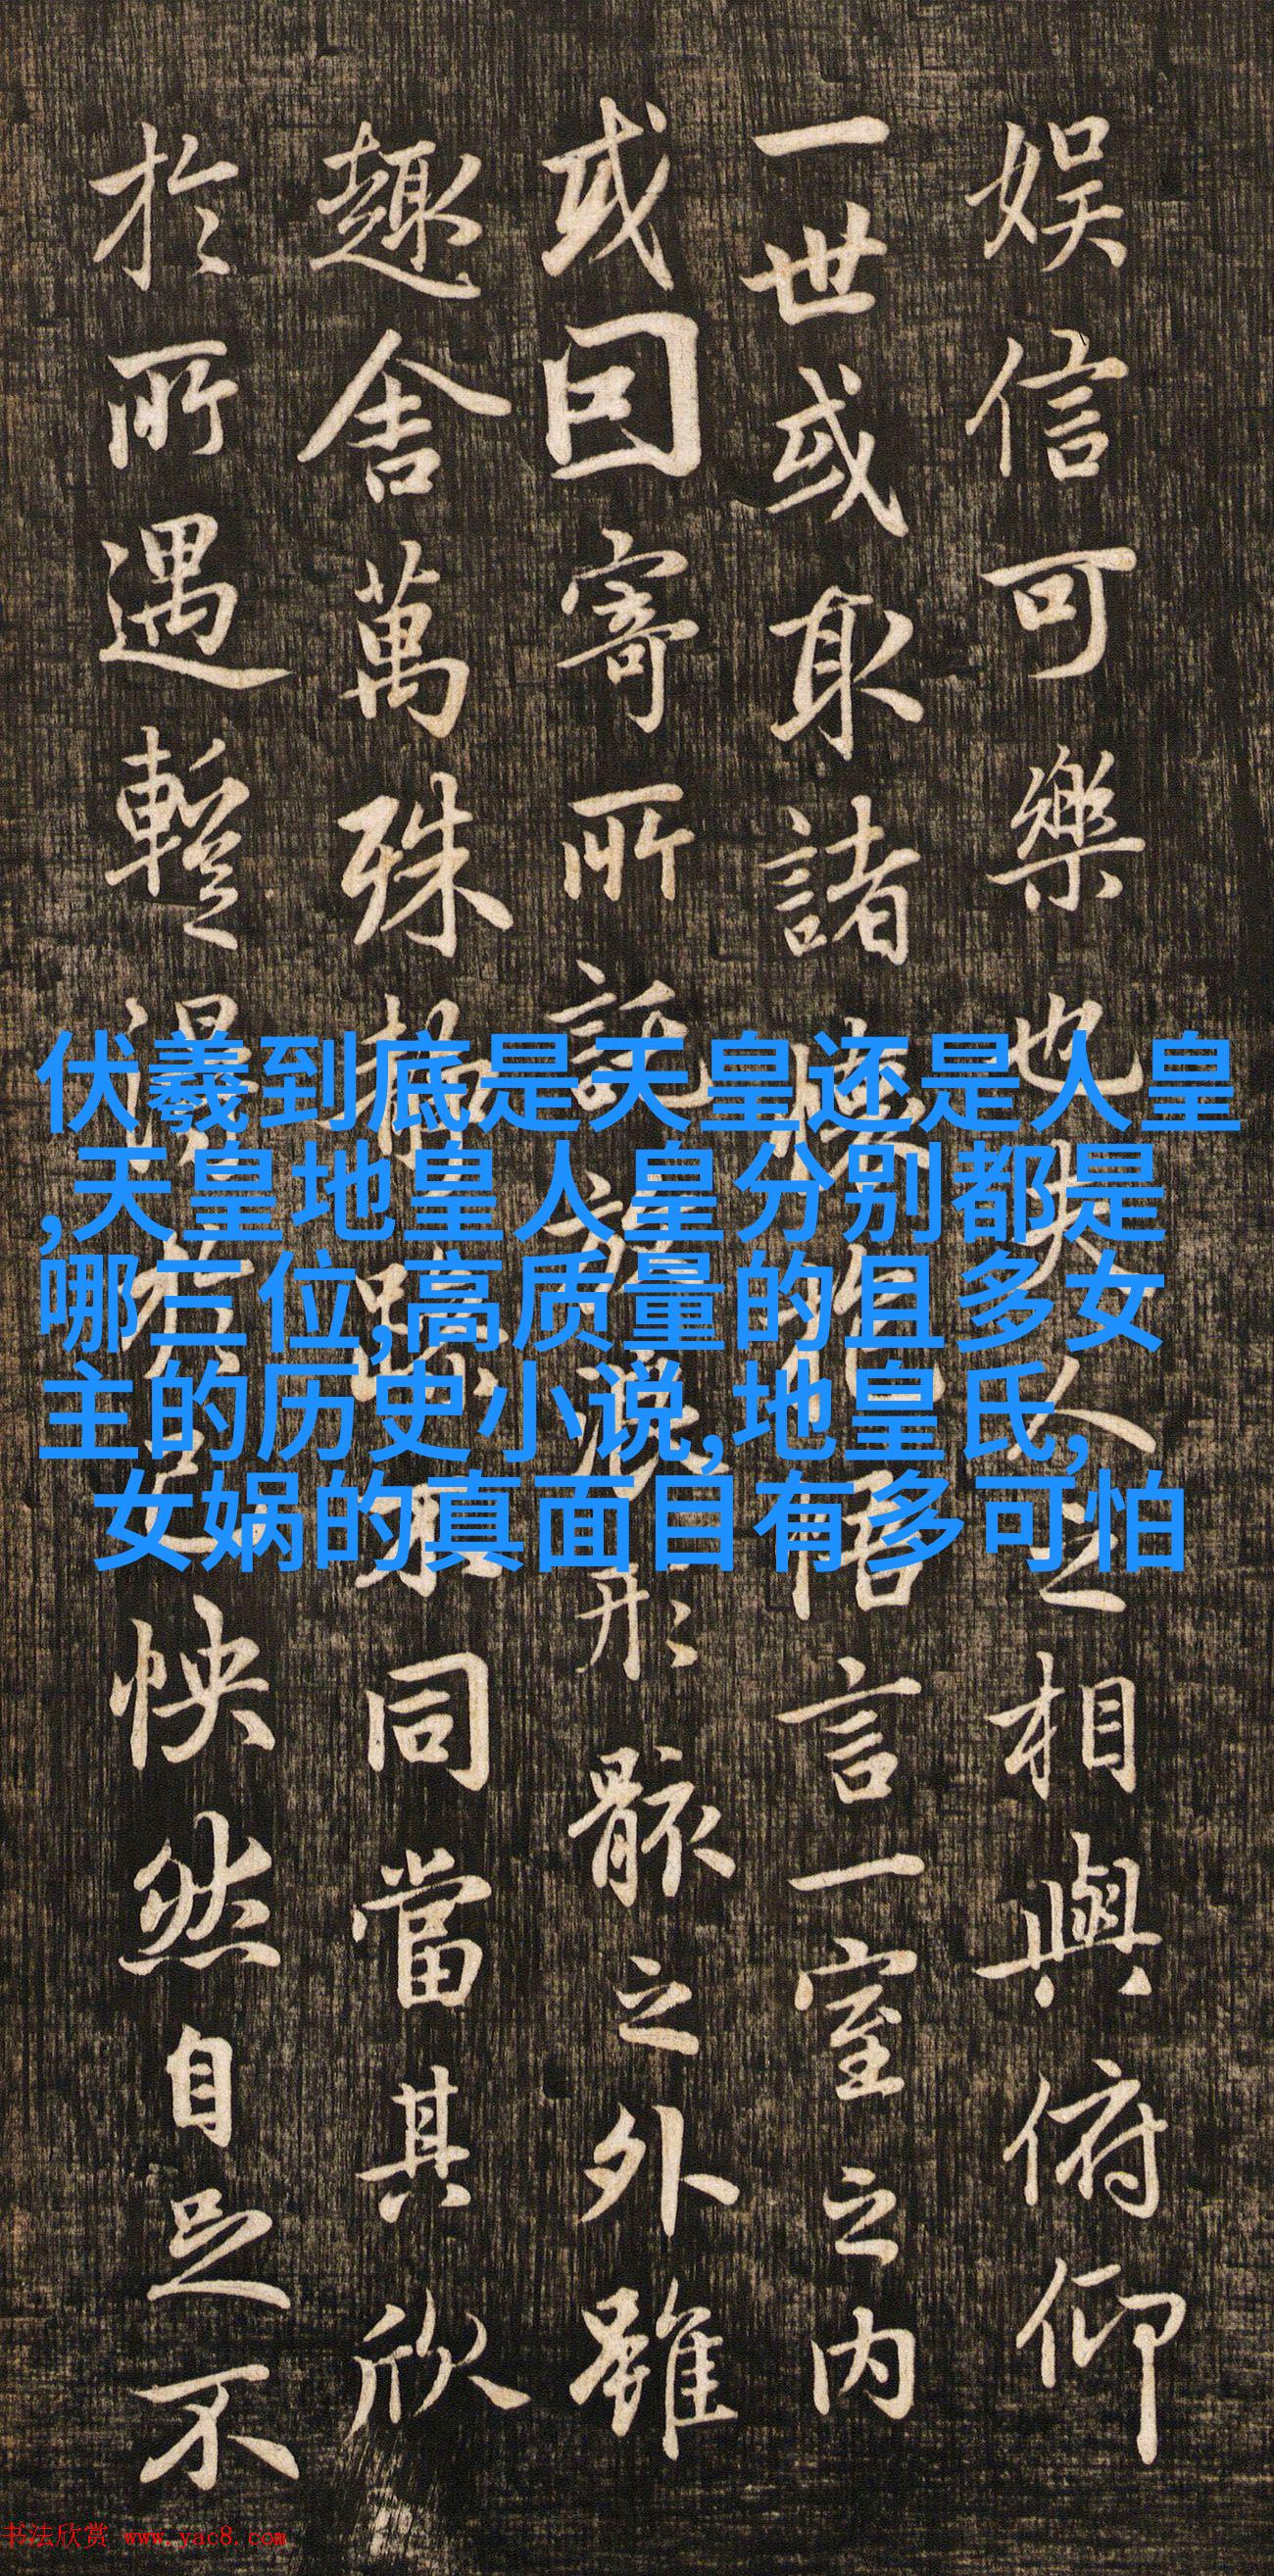 娛信可樂也夫人之相與俯仰
一世或取諸懷抱悟言一室之内
或因寄所託放浪形骸之外雖
趣舍萬殊静躁不同當其欣
於所遇暫得於己怏然自足不
伏羲到底是天皇还是人皇
,天皇地皇人皇分别都是
哪三位,高质量的且多女
主的历史小说,地皇氏,
女娲的真面目有多可怕
书法欣赏 www.yac8.com